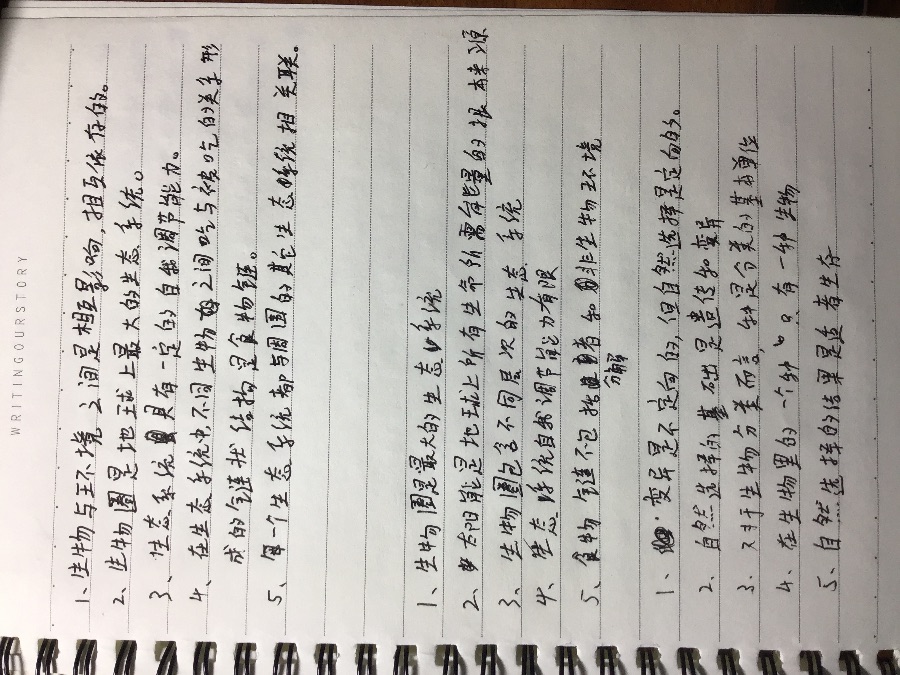 WRITINGOURSTORY
1、生物与环境之间是相互影响,相互依存的。
2、生物圈是地球上最大的生态系统。
3、生态系统具有一定的自我调节能力。
4、在生态系统中,不同生物之间吃与被吃的关系形
成的链状结构是食物链。
5、每一个生态系统都与周围的其它生态系统相关联。
1、生物圈是最大的生态系统
2、太阳能是地球上所有生命所需能量的根本来源
3、生物圈包含不同层次的生态系统
4、生态系统自我调节能力有限
5、食物链不包括分解者和非生物环境
1、变异是不定向的,但自然选择是定向的。
2、自然选择的基础是遗传和变异
3、对于生物分类而言,种是分类的基本单位
4、在生物里的一个种只有一种生物
5、自然选择的结果是适者生存